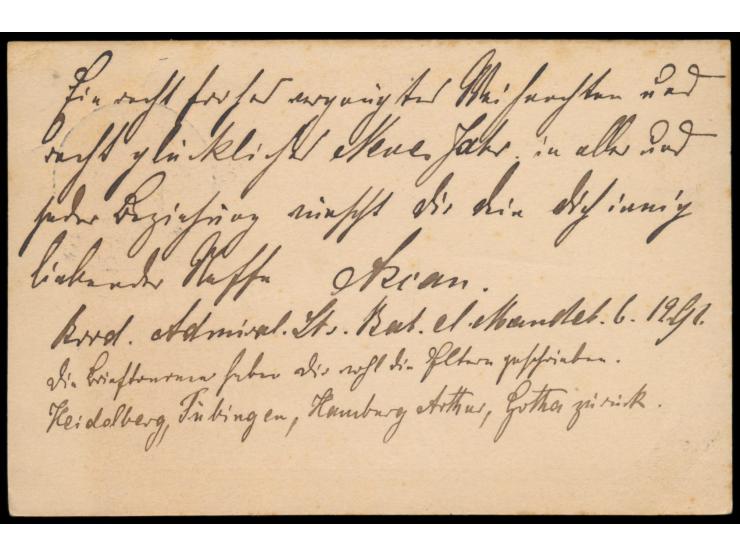 Ein recht frohes vergnügtes Weihnachten und
recht glückliches Neues Jahr in aller und
jeder Beziehung wünscht Dir dein Dich innig
liebender Neffe
Bord. Admiral. Str. Bab. el. Mandeb. 6. 12.
Die haben Dir wohl die Eltern geschrieben.
Heidelberg, Tübingen, Hamburg Arthur, Gotha zurück.